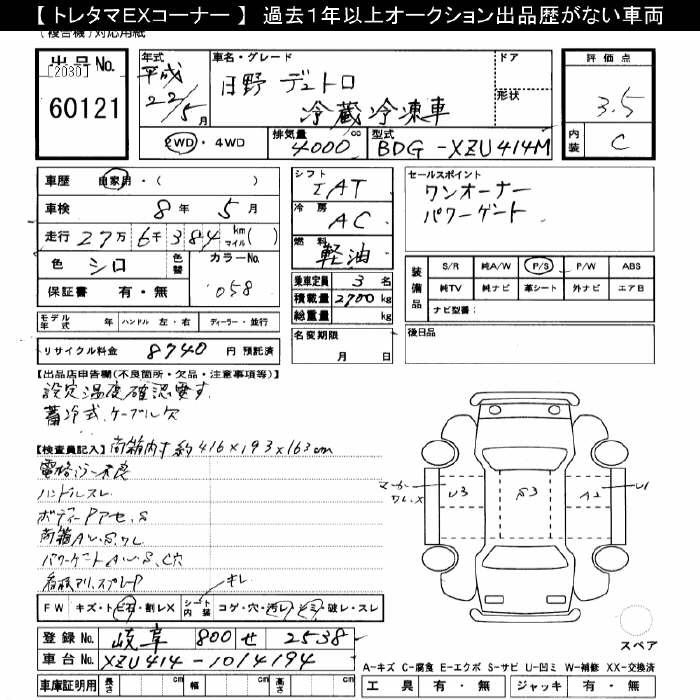 【 トレタマEXコーナー 】 過去1年以上オークション出品歴がない車両
(複合機)対応用紙
出品No.
[2030]
60121
年式
平成
22/5月
車名・グレード
日野 デュトロ
冷蔵冷凍車
ドア
形状
評価点
3.5
内装 C
2WD・4WD
排気量 4000 cc
型式 BDG-XZU414M
車歴 自家用・( )
車検 8年 5月
走行 27万 6千 384 km マイル( )
色 シロ 色替
カラーNo. 058
保証書 有・無
モデル年式 年 ハンドル 左・右 ディーラー・並行
リサイクル料金 8740 円 預託済
シフト IAT
冷房 AC
燃料 軽油
乗車定員 3 名
積載量 2700 kg
総重量 kg
名変期限 月 日
セールスポイント
ワンオーナー
パワーゲート
装備品
S/R 純A/W P/S P/W ABS
純TV 純ナビ 革シート 外ナビ エアB
ナビ型番:
後日品
【出品店申告欄(不良箇所・欠品・注意事項等)】
設定温度確認要す.
蓄冷式、ケーブル欠
【検査員記入】荷箱内寸約416×193×163cm
電格ミラー不良
ハンドルスレ
ボディーP
荷箱A
パワーゲートA・W・S、C穴
FW キズ・トビ石・割レX
シート内装 コゲ・穴・汚レ・シミ・破レ・スレ
キレ
マーカーワレ、X
U3
S3
A2
U1
スペア
登録No. 岐阜 800 せ 2538
車台No. XZU414-1014194
車庫証明用 長さ cm 幅 cm 高さ cm
A-キズ C-腐食 E-エクボ S-サビ U-凹ミ W-補修 XX-交換済
工具 有・無 ジャッキ 有・無